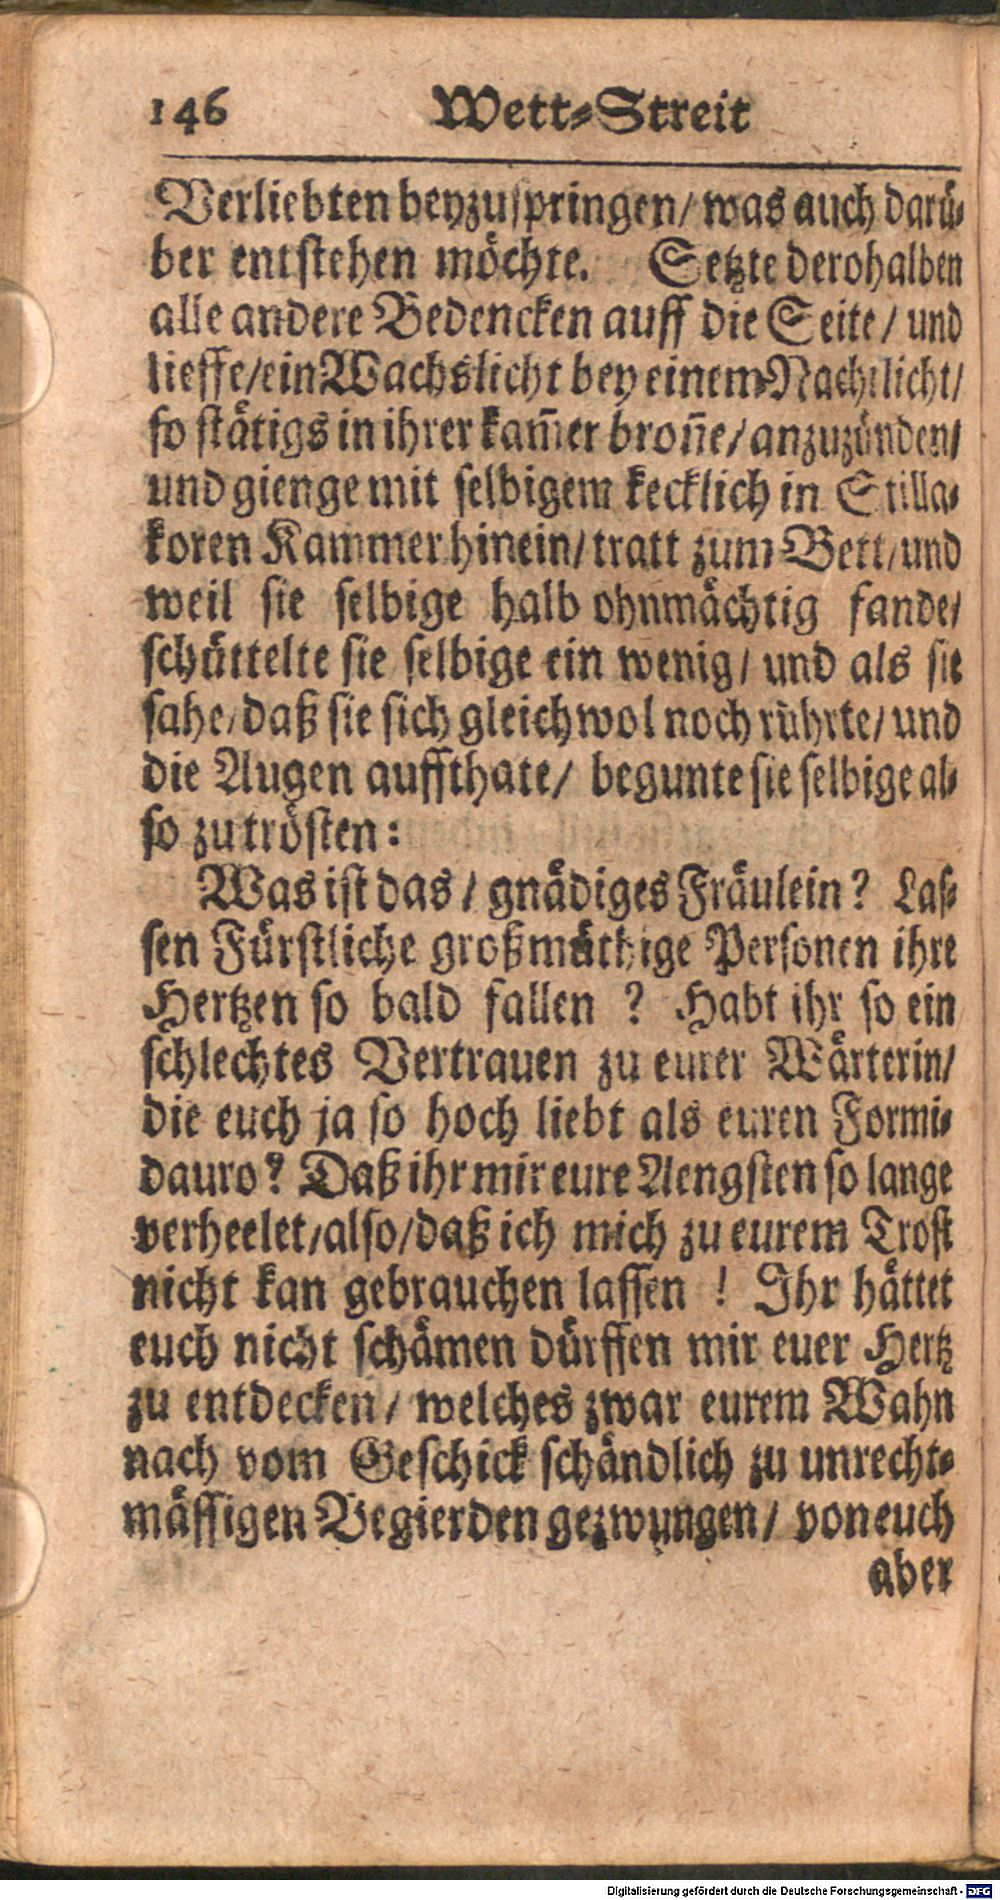 146 Wett-Streit
Verliebten beyzuspringen/ was auch darü-
ber entstehen möchte. Setzte derohalben
alle andere Bedencken auff die Seite/ und
lieffe/ein Wachslicht bey einem Nachtlicht/
so stätigs in ihrer kam̄er bron̄e/ anzuzünden/
und gienge mit selbigem kecklich in Stilla-
koren Kammer hinein/ tratt zum Bett/ und
weil sie selbige halb ohnmächtig fande/
schüttelte sie selbige ein wenig/ und als sie
sahe/ daß sie sich gleichwol noch rührte/ und
die Augen auffthate/ begunte sie selbige al-
so zu trösten:
Was ist das/ gnädiges Fräulein? Las-
sen Fürstliche großmüthige Personen ihre
Hertzen so bald fallen? Habt ihr so ein
schlechtes Vertrauen zu eurer Wärterin/
die euch ja so hoch liebt als euren Formi-
dauro? Daß ihr mir eure Aengsten so lange
verheelet/also/daß ich mich zu eurem Trost
nicht kan gebrauchen lassen! Ihr hättet
euch nicht schämen dürffen mir euer Hertz
zu entdecken/ welches zwar eurem Wahn
nach vom Geschick schändlich zu unrecht-
mässigen Begierden gezwungen/ von euch
aber
Digitalisierung gefördert durch die Deutsche Forschungsgemeinschaft - DFG